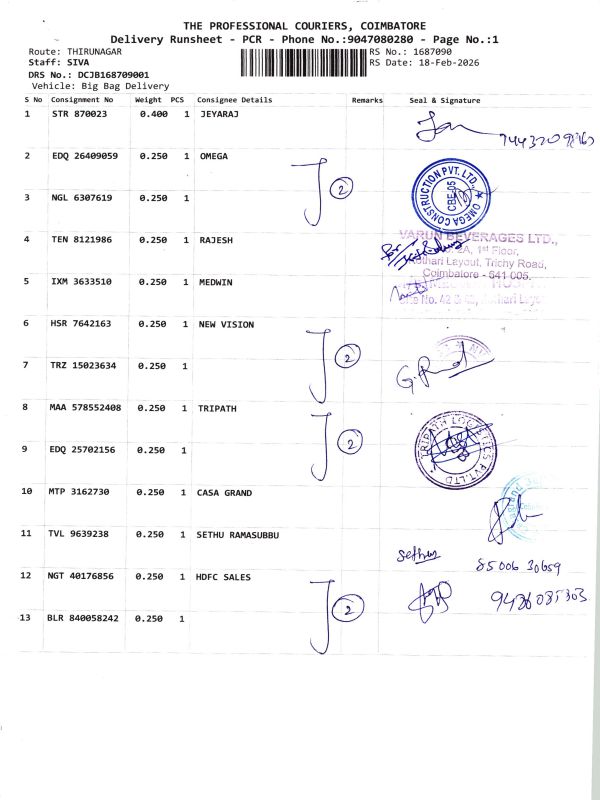 THE PROFESSIONAL COURIERS, COIMBATORE
Delivery Runsheet - PCR - Phone No.:9047080280 - Page No.:1
Route: THIRUNAGAR RS No.: 1687090
Staff: SIVA RS Date: 18-Feb-2026
DRS No.: DCJB168709001
Vehicle: Big Bag Delivery
S No Consignment No Weight PCS Consignee Details Remarks Seal & Signature
1 STR 870023 0.400 1 JEYARAJ
2 EDQ 26409059 0.250 1 OMEGA 2
OMEGA CONSTRUCTION PVT. LTD. CBE-05
3 NGL 6307619 0.250 1
4 TEN 8121986 0.250 1 RAJESH
VARUN BEVERAGES LTD.,
1st Floor,
Layout, Trichy Road,
Coimbatore - 641 005.
5 IXM 3633510 0.250 1 MEDWIN
6 HSR 7642163 0.250 1 NEW VISION 2
7 TRZ 15023634 0.250 1
8 MAA 578552408 0.250 1 TRIPATH 2
TRIPATH LOGISTICS PVT.LTD
9 EDQ 25702156 0.250 1
10 MTP 3162730 0.250 1 CASA GRAND
11 TVL 9639238 0.250 1 SETHU RAMASUBBU
85006 30659
12 NGT 40176856 0.250 1 HDFC SALES 2
13 BLR 840058242 0.250 1